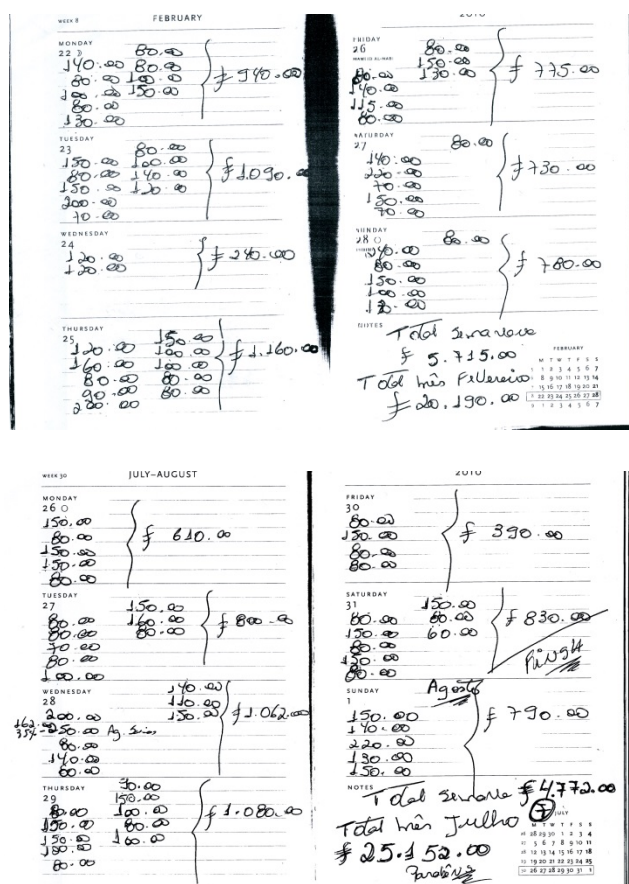 WEEK 8 FEBRUARY
MONDAY
22 80.00
140.00 80.00
80.00 100.00
100.00 150.00
80.00
130.00
£ 940.00
TUESDAY
23 80.00
150.00 100.00
80.00 140.00
150.00 120.00
200.00
70.00
£ 1.090.00
WEDNESDAY
24
120.00
120.00
£ 240.00
THURSDAY
25 150.00
120.00 100.00
160.00 100.00
80.00 80.00
90.00 80.00
200.00
£ 1.160.00
2010
FRIDAY
26 80.00
150.00
80.00 130.00
140.00
115.00
80.00
£ 775.00
SATURDAY
27 80.00
140.00
220.00
70.00
150.00
70.00
£ 730.00
SUNDAY
28 80.00
240.00
80.00
150.00
100.00
£ 780.00
NOTES
Total semanave
£ 5.715.00
Total mês Fevereiro
£ 20.190.00
FEBRUARY
M T W T F S S
5 1 2 3 4 5 6 7
6 8 9 10 11 12 13 14
7 15 16 17 18 19 20 21
8 22 23 24 25 26 27 28
9 1 2 3 4 5 6 7
WEEK 30 JULY–AUGUST
MONDAY
26
150.00
80.00
150.00
150.00
80.00
£ 610.00
TUESDAY
27 150.00
80.00 160.00
80.00 80.00
70.00
80.00
100.00
£ 800.00
WEDNESDAY
28 140.00
110.00
200.00 150.00
250.00
80.00
140.00
60.00
£ 1.062.00
THURSDAY
29 90.00
150.00
80.00 100.00
150.00 80.00
150.00 160.00
180.00
80.00
£ 1.080.00
2010
FRIDAY
30
80.00
150.00
80.00
80.00
£ 390.00
SATURDAY
31 150.00
80.00 80.00
150.00 60.00
80.00
150.00
80.00
£ 830.00
SUNDAY Agosto
1
150.00
140.00
220.00
130.00
150.00
£ 790.00
NOTES
Total semanave £ 4.772.00
Total mês Julho
£ 25.152.00
JULY
M T W T F S S
26 28 29 30 1 2 3 4
27 5 6 7 8 9 10 11
28 12 13 14 15 16 17 18
29 19 20 21 22 23 24 25
30 26 27 28 29 30 31 1